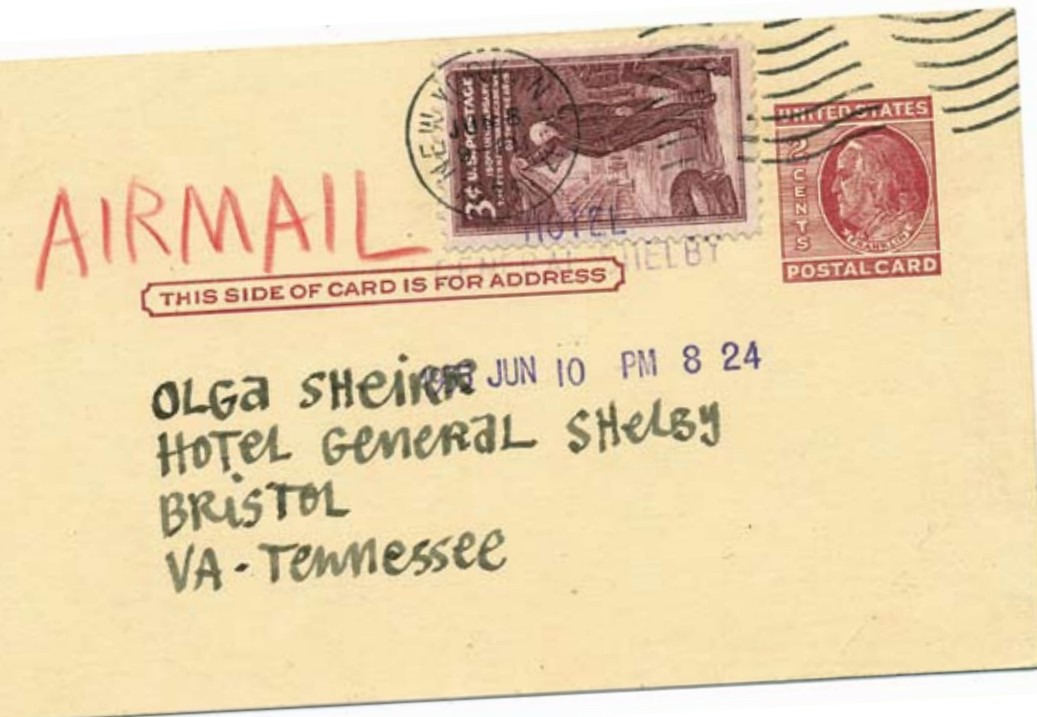 AIRMAIL
NEW YORK, N.
3¢ U.S. POSTAGE
HOTEL
GENERAL SHELBY
UNITED STATES
2 CENTS
FRANKLIN
POSTAL CARD
THIS SIDE OF CARD IS FOR ADDRESS
JUN 10 PM 8 24
OLGa SHeiRR
HOTeL GeneRaL SHeLBY
BRiSTOL
VA - Tennessee